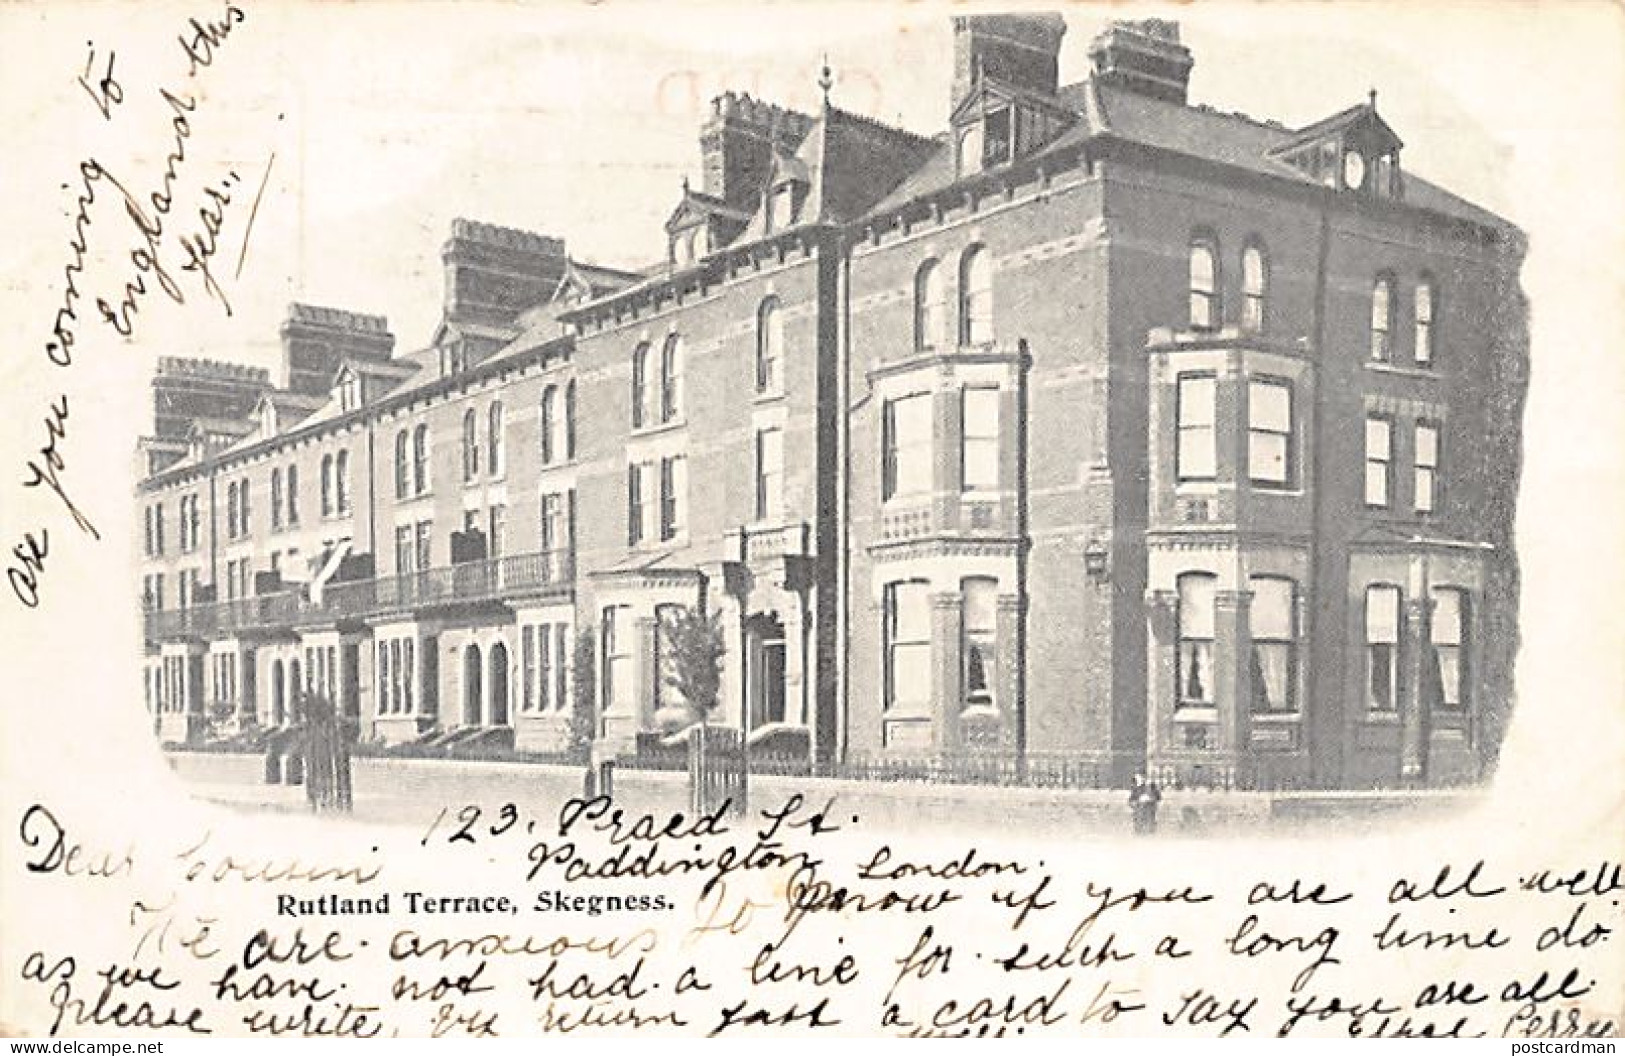 are you coming to
England this
year.,
123. Praed St.
Paddington London.
Dear Cousin
Rutland Terrace, Skegness.
We are anxious to know if you are all well
as we have not had a line for such a long time do
Please write, by return just a card to say you are all
well. Ethel Perry
delcampe.net
postcardman